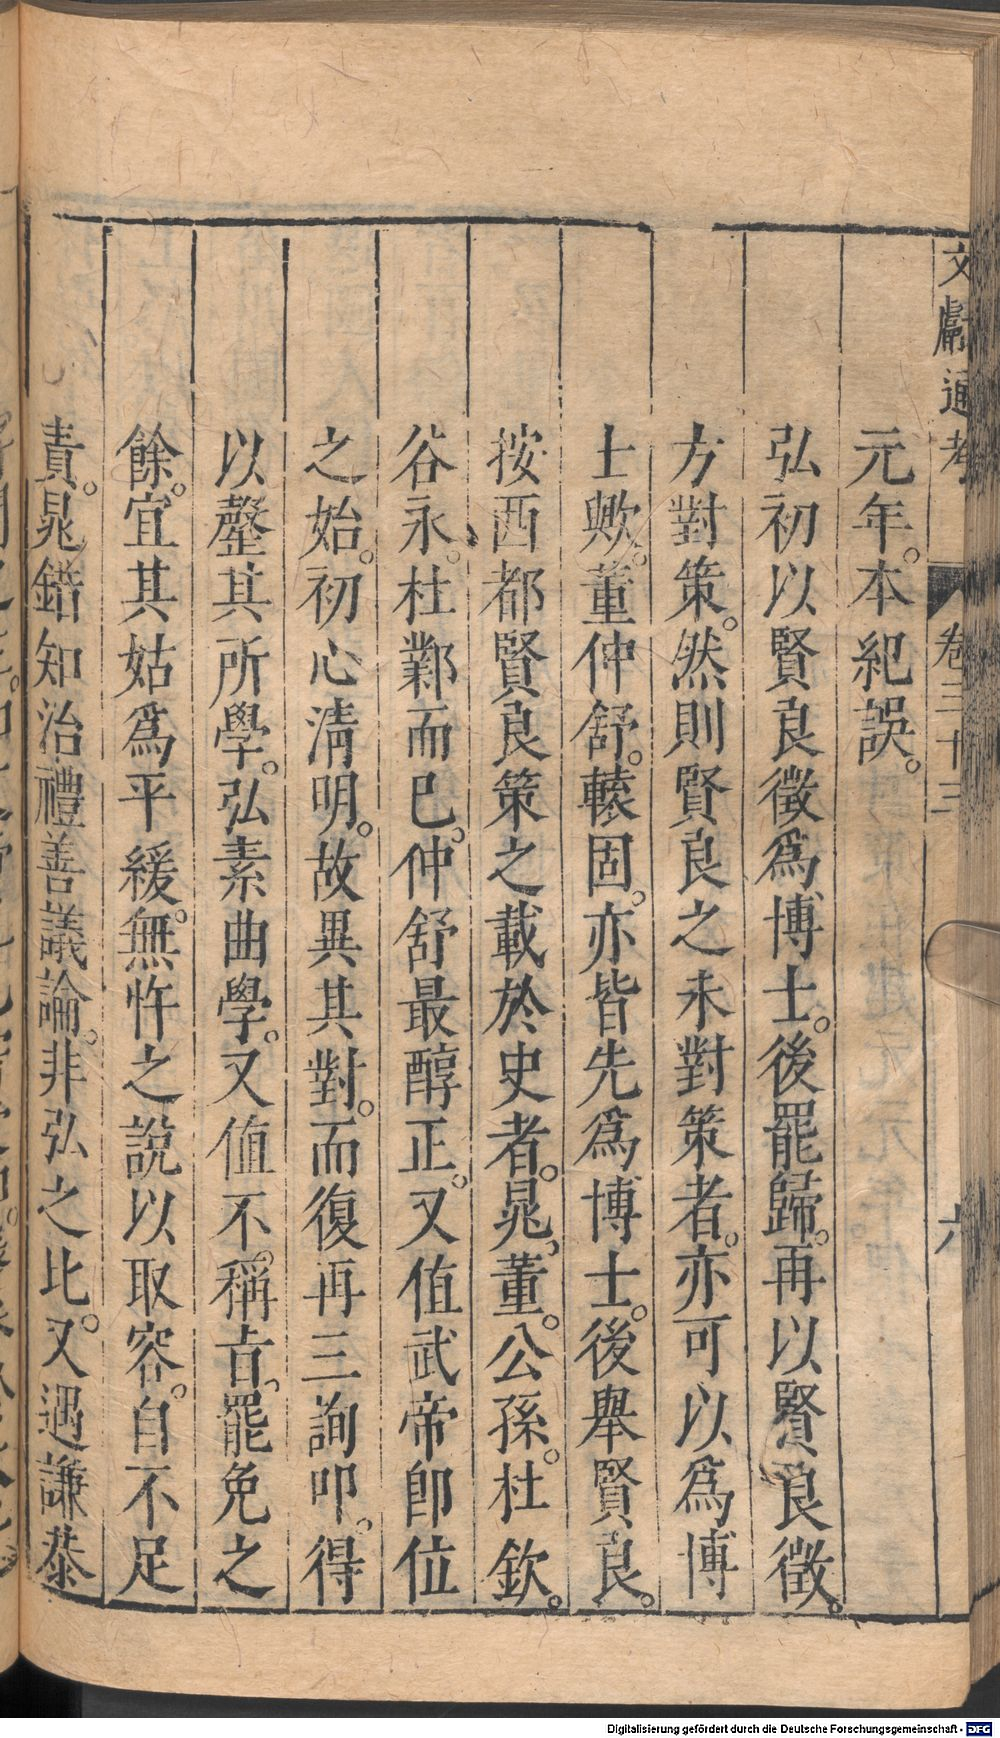 文獻通考 卷三十三 六
元年。本紀誤。
弘初以賢良徵爲博士。後罷歸。再以賢良徵。
方對策。然則賢良之未對策者。亦可以爲博
士歟。董仲舒。轅固。亦皆先爲博士。後舉賢良。
按西都賢良策之載於史者。晁。董。公孫。杜欽。
谷永。杜鄴而已。仲舒最醇正。又值武帝卽位
之始。初心淸明。故異其對。而復再三詢叩。得
以罄其所學。弘素曲學。又值不稱旨。罷免之
餘。宜其姑爲平緩。無忤之說以取容。自不足
責。晁錯知治禮善議論。非弘之比。又遇謙恭
Digitalisierung gefördert durch die Deutsche Forschungsgemeinschaft - DFG